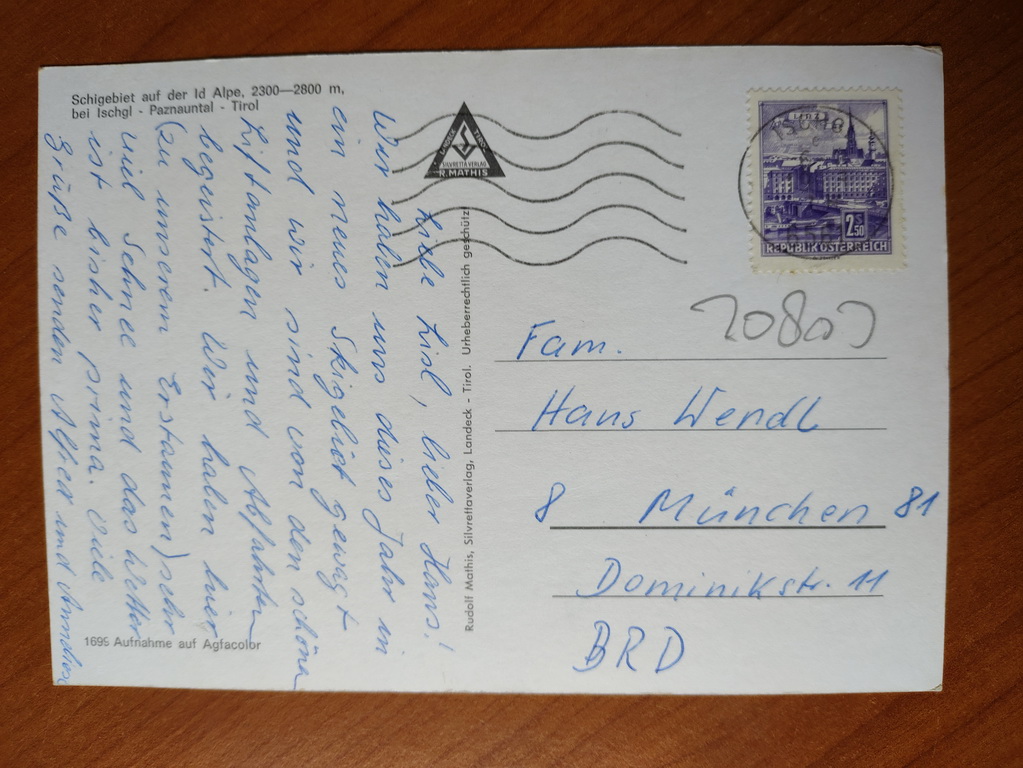 Schigebiet auf der Id Alpe, 2300—2800 m,
bei Ischgl - Paznauntal - Tirol
Liebe Lisl, lieber Hans!
Wir haben uns dieses Jahr in
ein neues Skigebiet gewagt
und wir sind von den schönen
Liftanlagen und Abfahrten
begeistert. Wir haben hier
(zu unserem Erstaunen) sehr
viel Schnee und das Wetter
ist bisher prima. Viele
Grüße senden Alfred und
1699 Aufnahme auf Agfacolor
SILVRETTA VERLAG
R. MATHIS
Rudolf Mathis, Silvrettaverlag, Landeck - Tirol. Urheberrechtlich geschützt
LINZ
2 S 50
REPUBLIK ÖSTERREICH
20803
Fam.
Hans Wendl
8 München 81
Dominikstr. 11
BRD